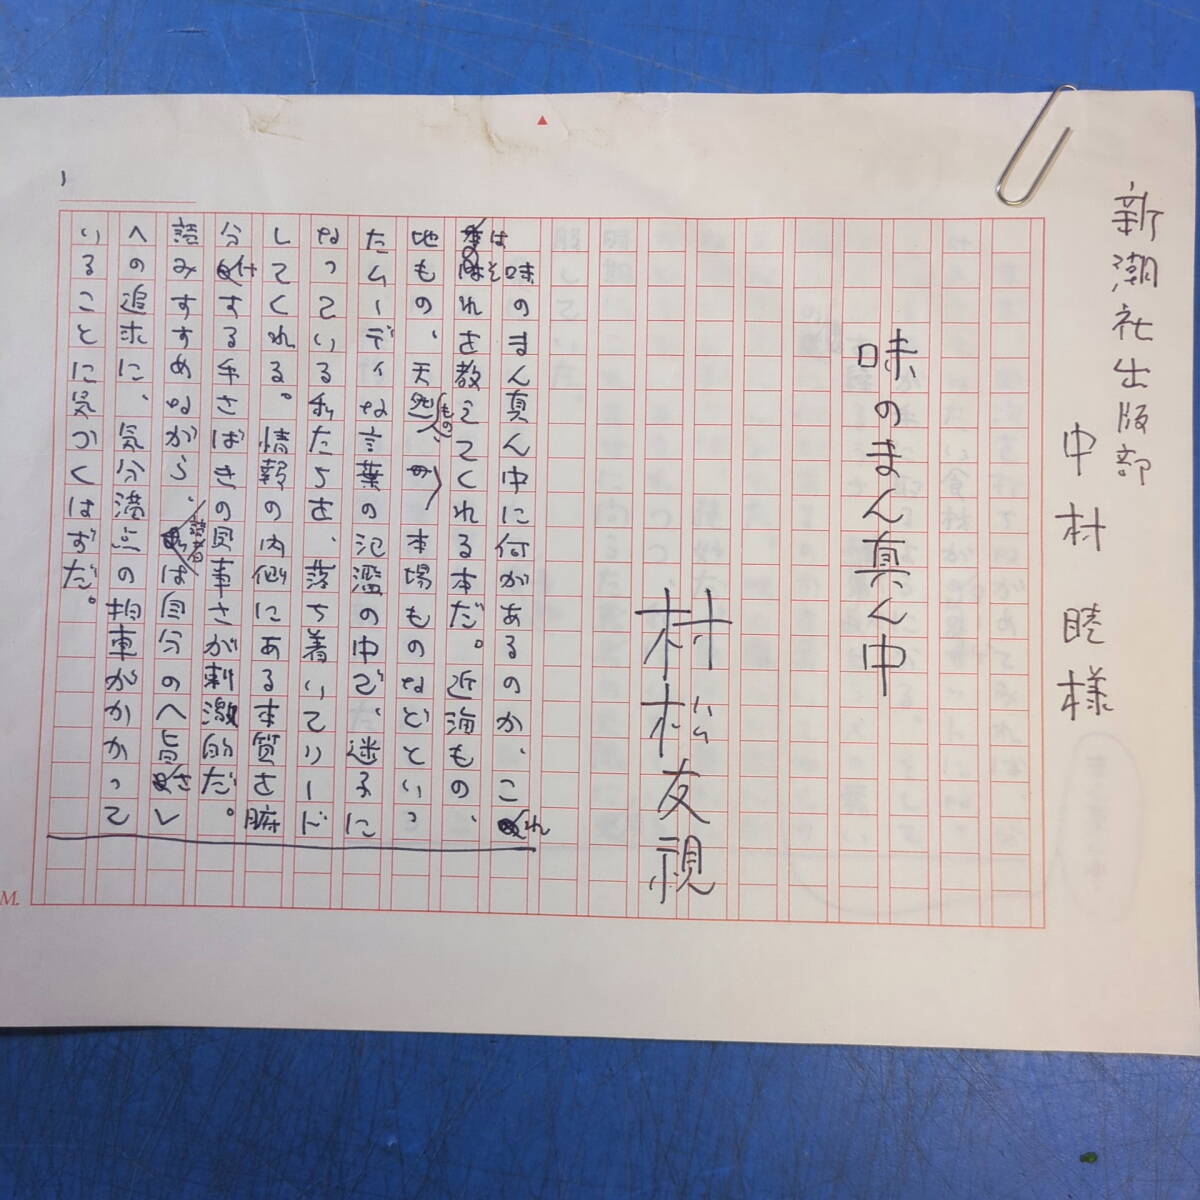 新潮社出版部
中村 睦様
味のまん真ん中
村松友視
味のまん真ん中に何があるのか、これ
はそれを教えてくれる本だ。近海もの、
地もの、天然もの、本場ものなどといっ
たムーディな言葉の氾濫の中で、迷子に
なっている私たちを、落ち着いてリード
してくれる。情報の内側にある本質を腑
分けする手さばきの見事さが刺激的だ。
読みすすめながら、読者は自分の〈旨さ〉
への追求に、気分満点の拍車がかかって
いることに気づくはずだ。
1
M.